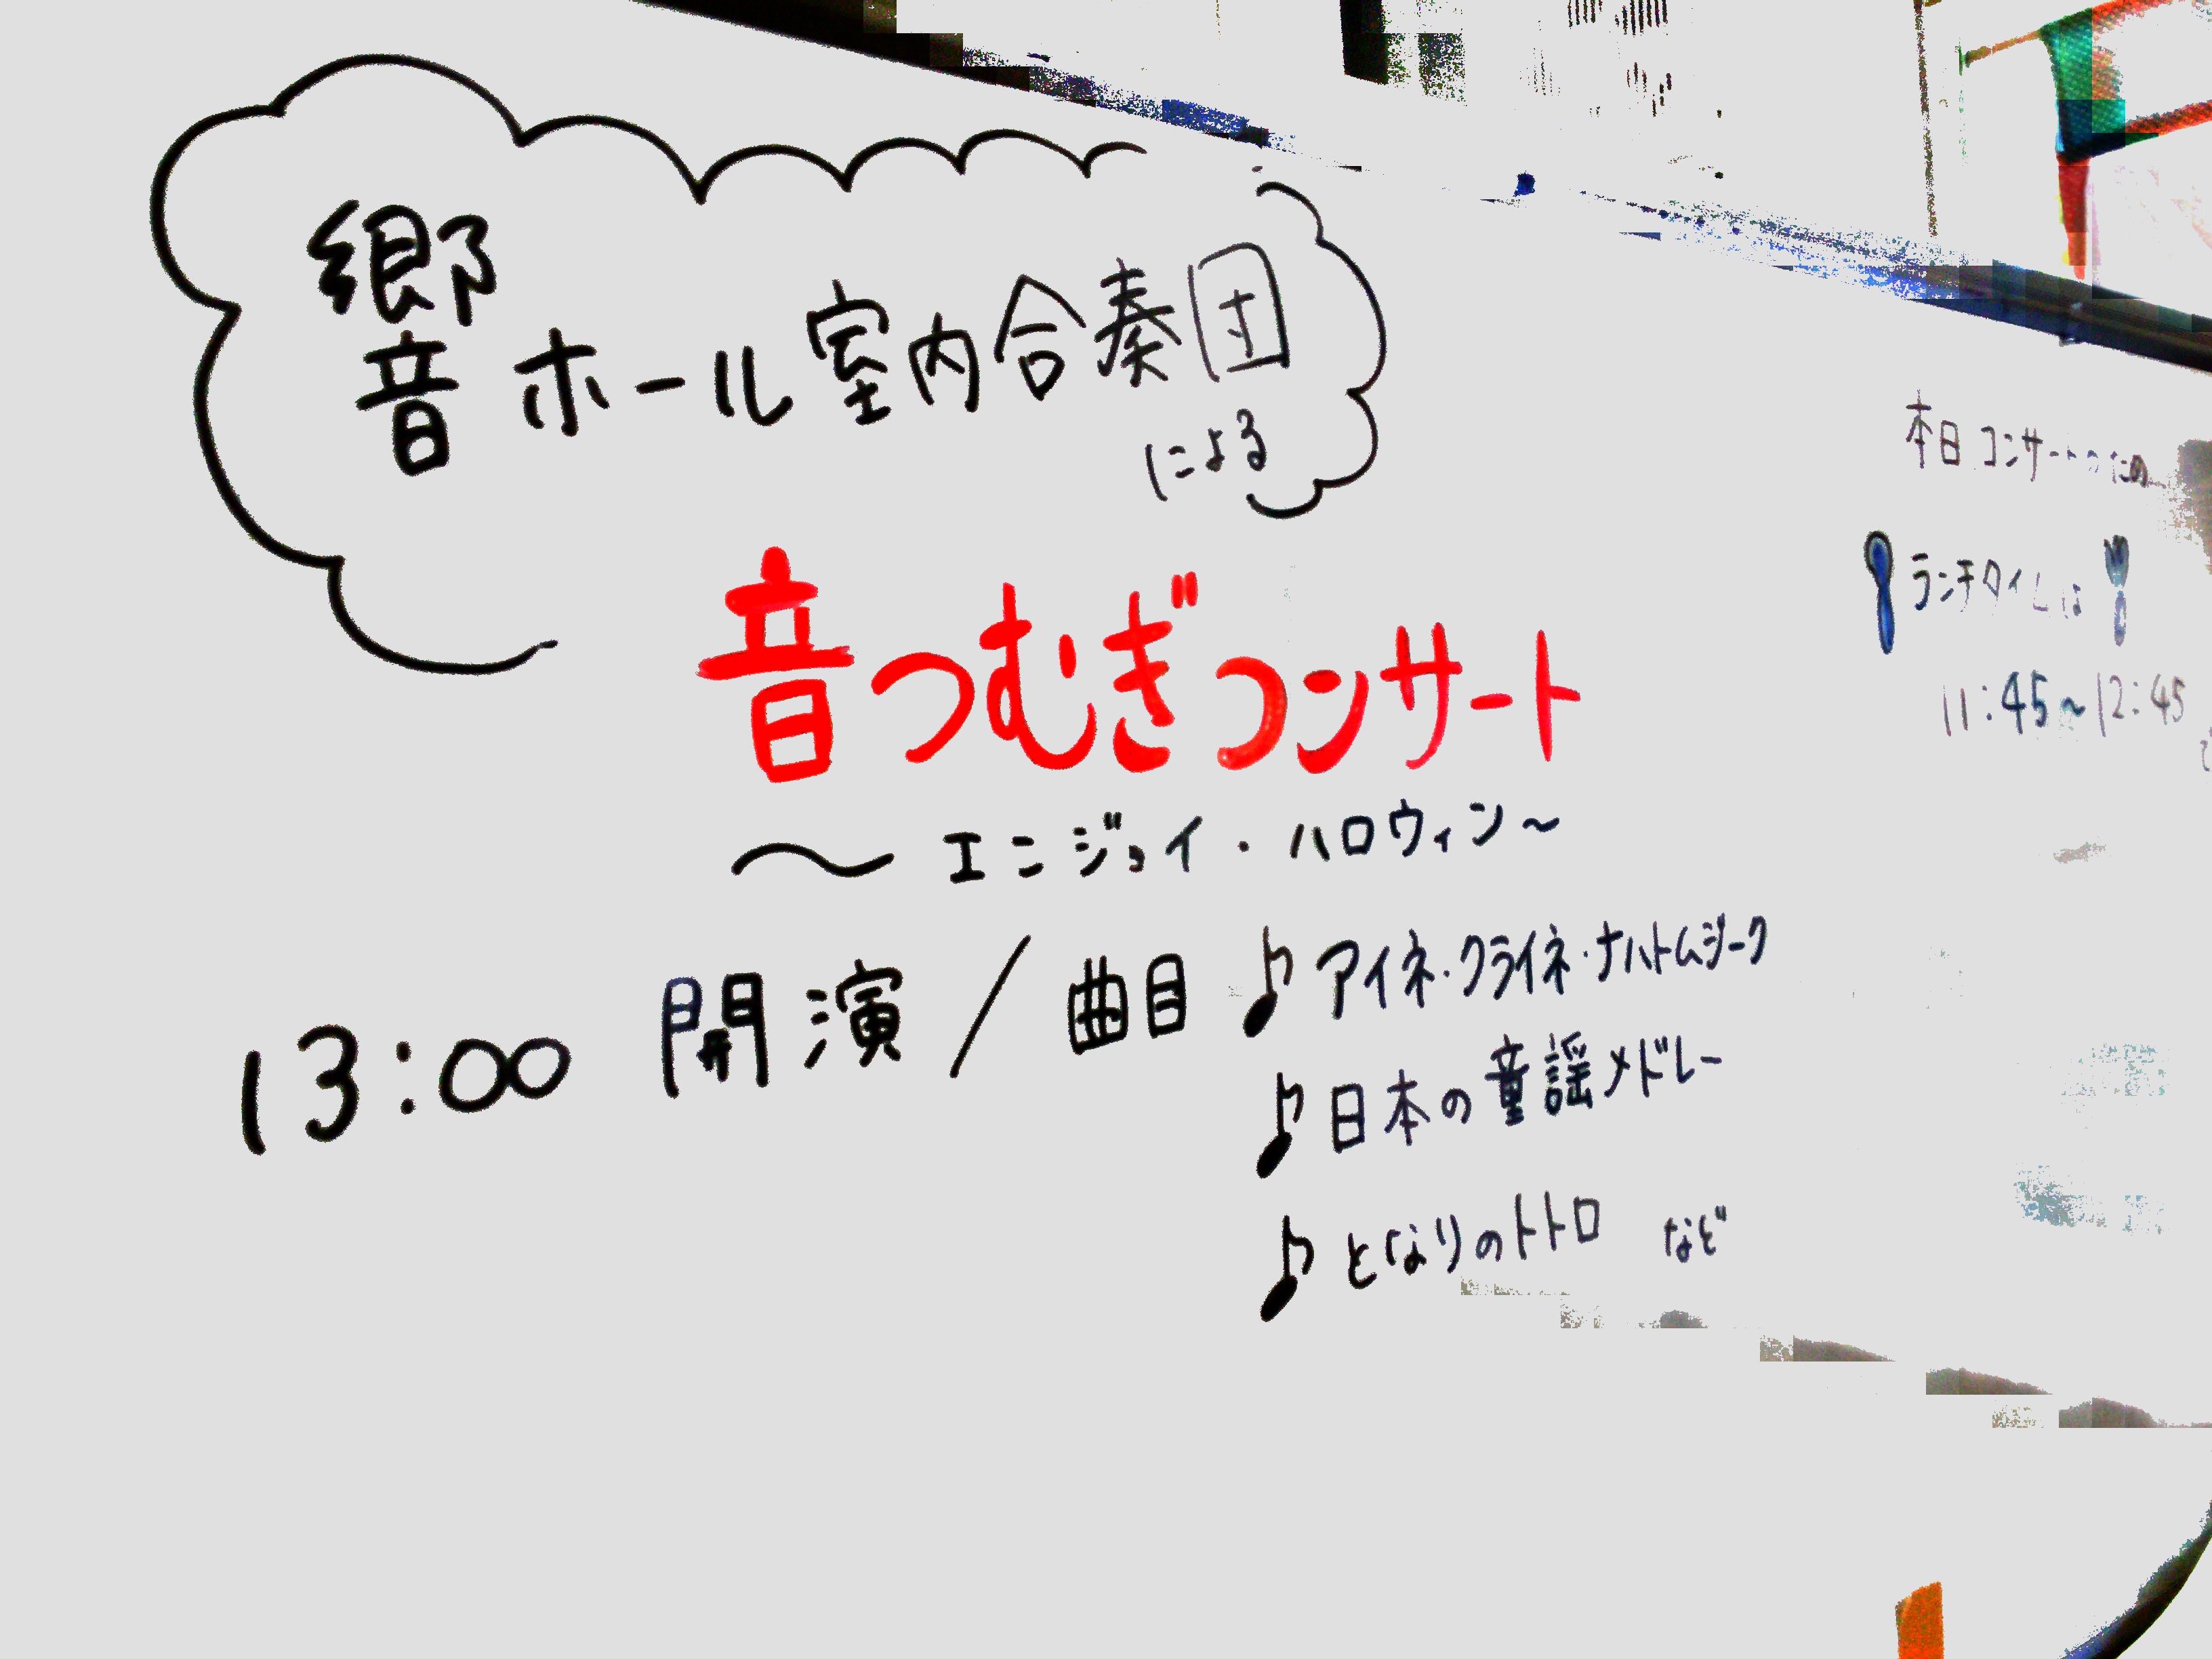 響ホール室内合奏団
による
音つむぎコンサート
〜エニジョイ・ハロウィン〜
13:00 開演/曲目 ♪アイネ・クライネ・ナハトムジーク
♪日本の童謡メドレー
♪となりのトトロ など
本日コンサートのため
ランチタイムは
11:45~12:45